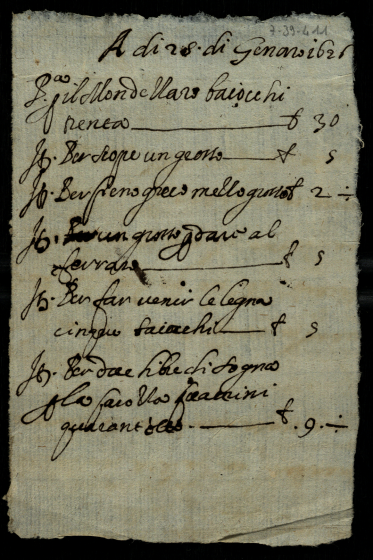 7-39-411
A di 28. di Genaro 1626
P.º il Mondellaro baiocchi
trenta — 30
Itt. Per scope un grosso — 5
Itt. Per fieno greco mezzo grosso 2 ÷
Itt. un grosso p dare al
ferraro — 5
Itt. Per far venir le legna
cinque baiocchi — 5
Itt. Per doe libre di sogna
quarant — 9 ÷